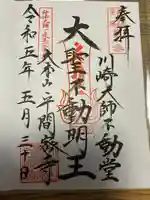 奉拝
川崎大師不動堂
大聖不動明王
大本山平間教寺
令和五年五月三十日